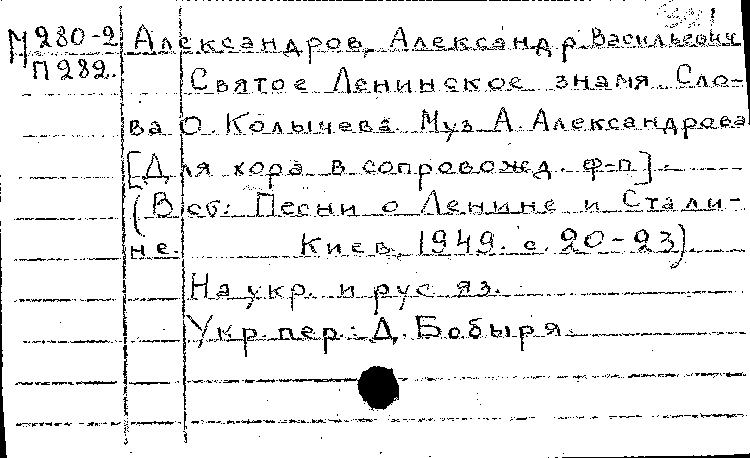 М 280-2 Александров, Александр Васильевич
П 282. Святое Ленинское знамя. Сло-
ва О. Колычева. Муз. А. Александрова
[Для хора в сопровожд. ф-п].
(В сб: Песни о Ленине и Стали-
не. Киев, 1949. с. 20-23).
На укр. и рус яз.
Укр. пер.: Д. Бобыря.